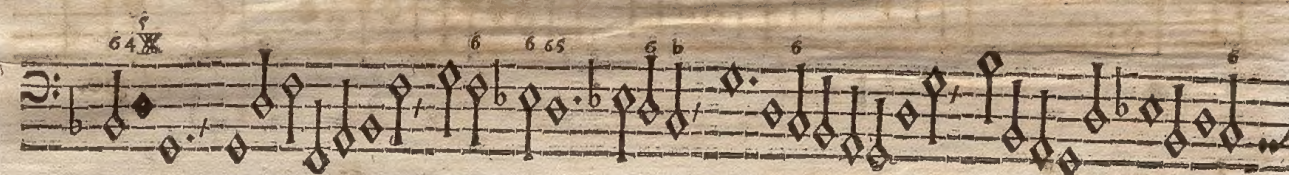 5
6 4 6 6 65 6 b 6 6